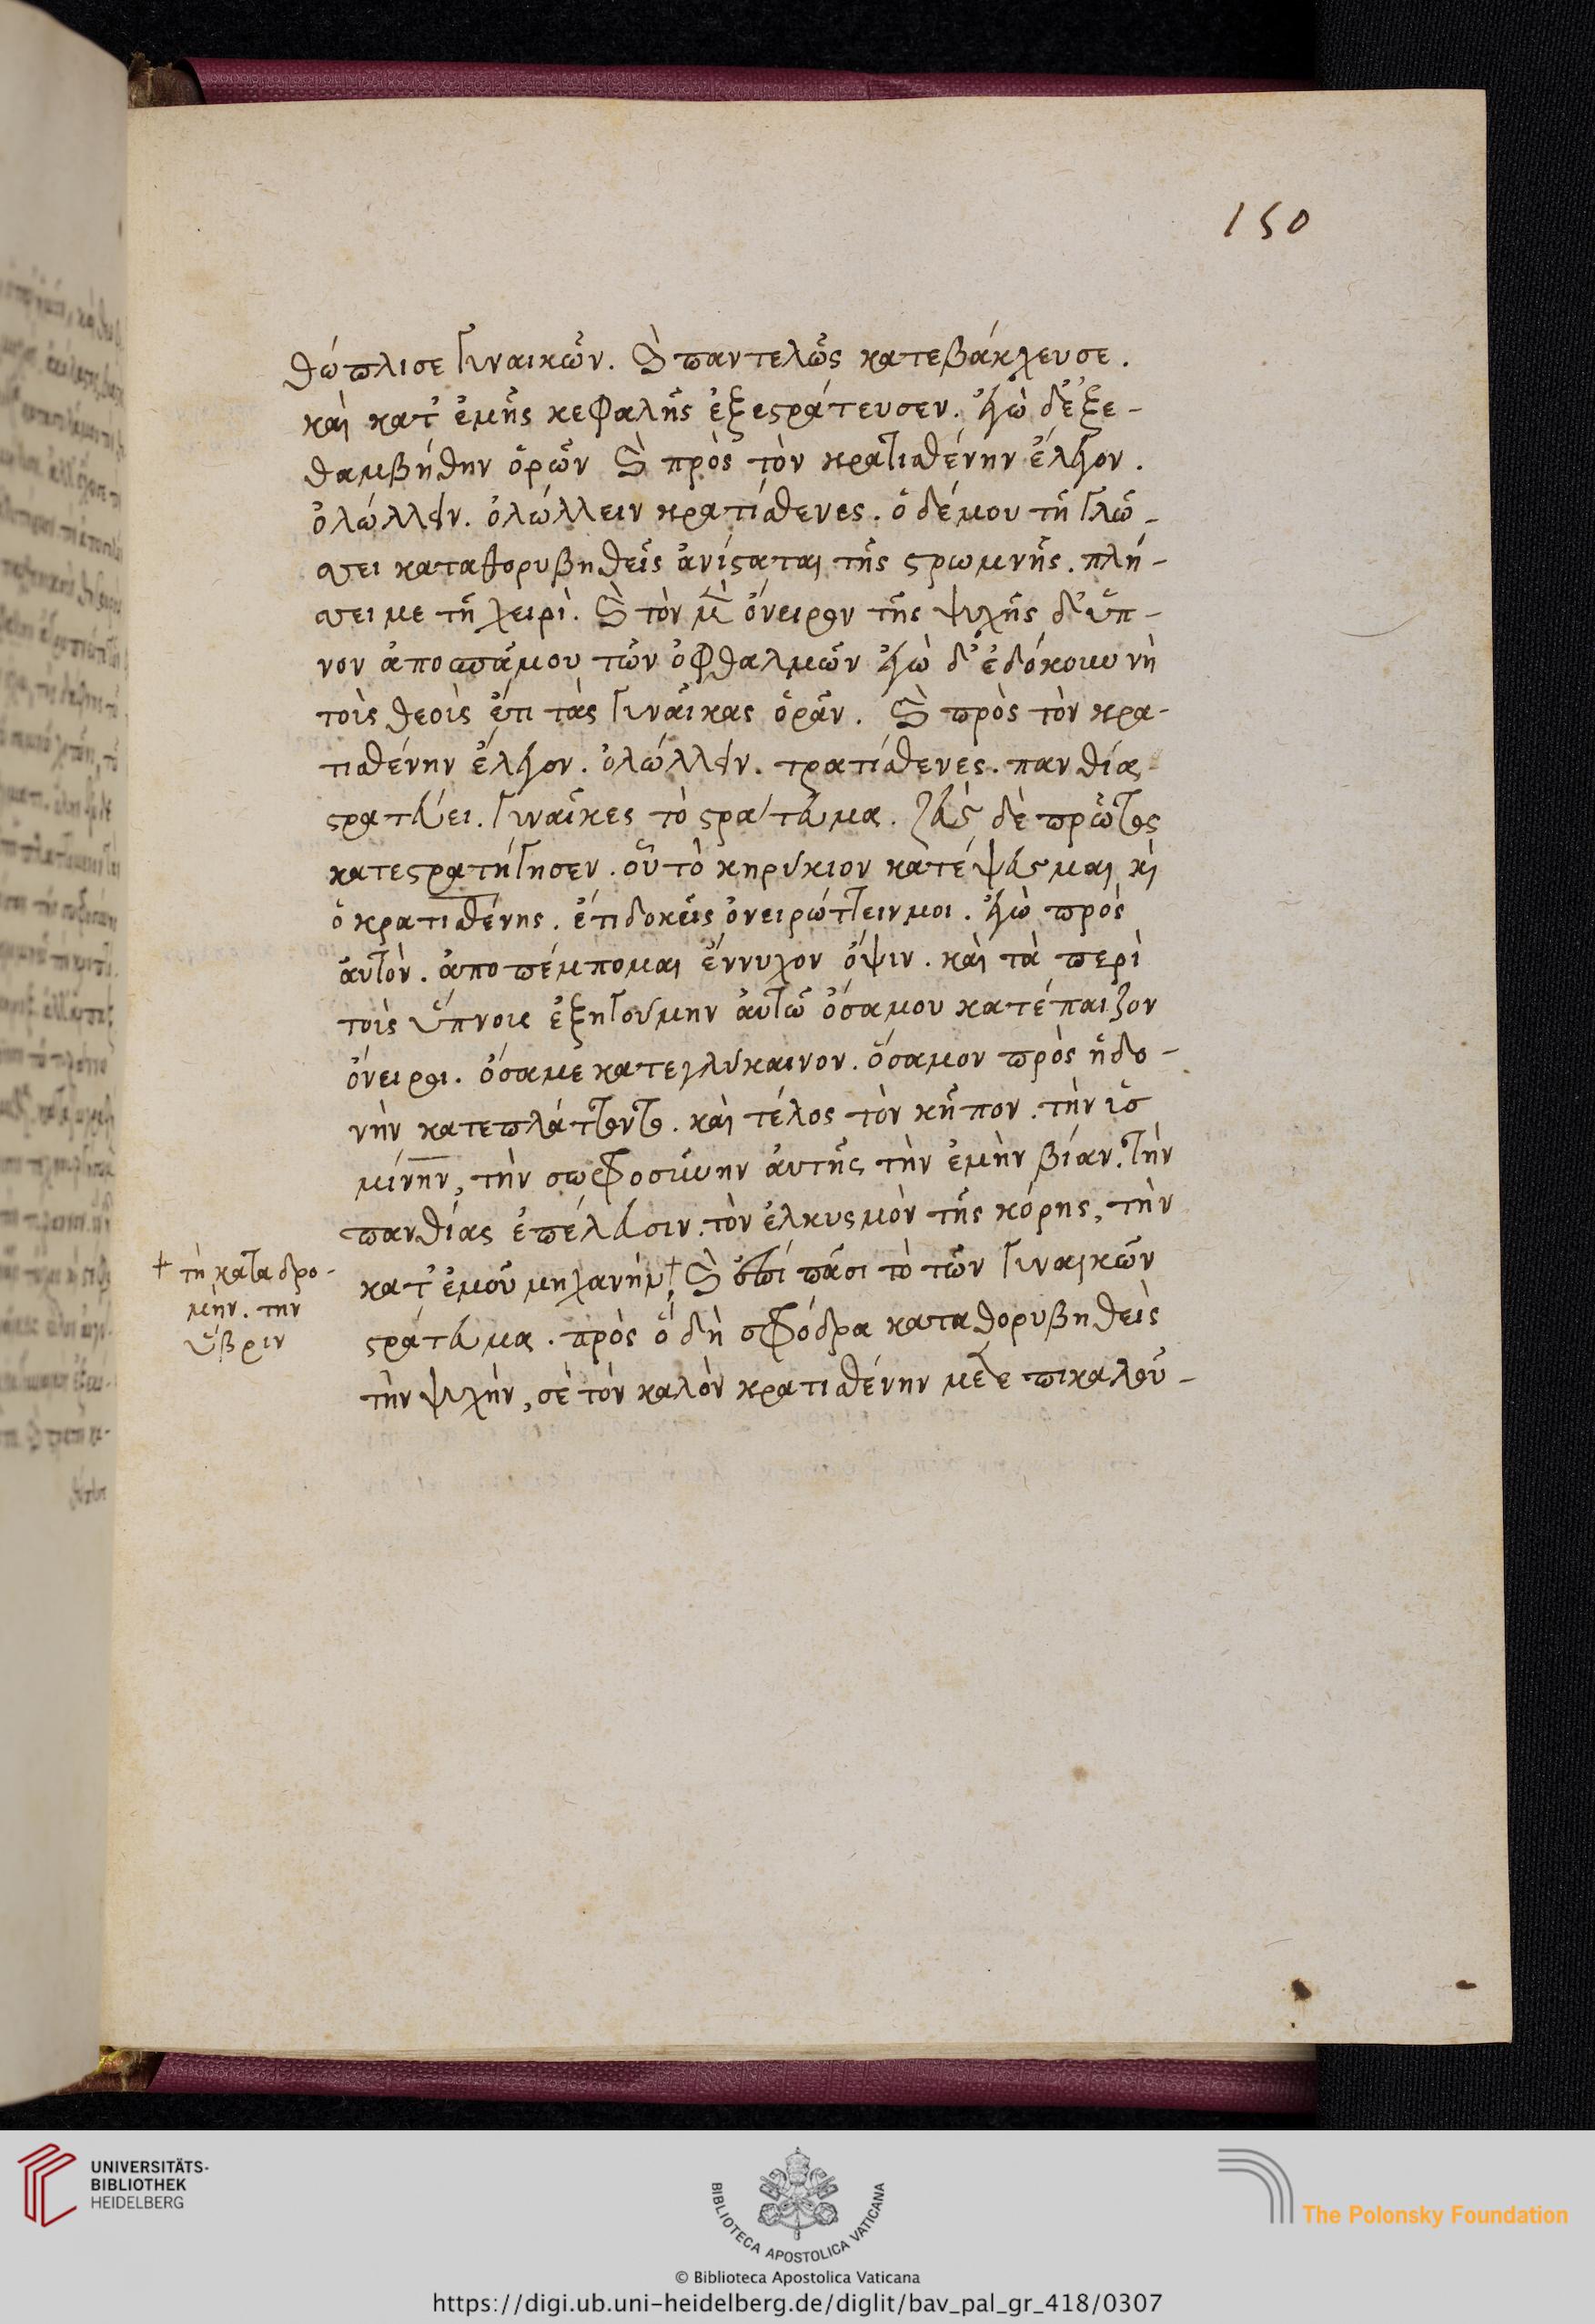 150
θώπλισε γυναικῶν. καὶ παντελῶς κατεβάκχευσε.
καὶ κατ' ἐμῆς κεφαλῆς ἐξεστράτευσεν. ἐγὼ δ' ἐξε-
θαμβήθην ὁρῶν καὶ πρὸς τὸν κρατισθένην ἔλεγον.
ὀλώλλειν. ὀλώλλειν κρατίσθενες. ὁ δέ μου τῆ γλώ-
σσει καταθορυβηθεὶς ἀνίσταται τῆς στρωμνῆς. πλή-
σσει με τῆ χειρὶ. καὶ τὸν μὲν ὄνειρον τῆς ψυχῆς δ' ὕπ-
νον ἀποσπᾶ μου τῶν ὀφθαλμῶν ἐγὼ δ' ἐδόκουν νὴ
τοὺς θεοὺς ἔτι τὰς γυναῖκας ὁρᾶν. καὶ πρὸς τὸν κρα-
τισθένην ἔλεγον. ὀλώλλειν. τρατίσθενες. πανθία
στρατεύει. γυναῖκες τὸ στράτευμα. ζεὺς δὲ πρῶτος
κατεστρατήγησεν. οὗ τὸ κηρύκιον κατέψευσμαι κὶ
ὁ κρατισθένης. ἔτι δοκεῖς ὀνειρώττειν μοι. ἐγὼ πρὸς
αὐτὸν. ἀποπέμπομαι ἔννυχον ὄψιν. καὶ τὰ περὶ
τοὺς ὕπνους ἐξηγούμην αὐτῶ ὅσα μου κατέπαιζον
ὄνειροι. ὅσα με κατεγλύκαινον. ὅσα μου πρὸς ἡδο-
νὴν κατεπλάττοντο. καὶ τέλος τὸν κῆπον. τὴν ὑσ
μίνην, τὴν σωφροσύνην αὐτῆς τὴν ἐμὴν βίαν. τὴν
πανθίας ἐπέλευσιν. τὸν ἑλκυσμὸν τῆς κόρης, τὴν
κατ' ἐμοῦ μηχανὴν, + καὶ ἐπὶ πᾶσι τὸ τῶν γυναικῶν
στράτευμα. πρὸς ὃ δὴ σφόδρα καταθορυβηθεὶς
τὴν ψυχὴν, σὲ τὸν καλὸν κρατισθένην μετεπικαλού-
+ τὴ καταδρο-
μὴν. την
ὕβριν
UNIVERSITÄTS-
BIBLIOTHEK
HEIDELBERG
BIBLIOTECA APOSTOLICA VATICANA
The Polonsky Foundation
© Biblioteca Apostolica Vaticana
https://digi.ub.uni-heidelberg.de/diglit/bav_pal_gr_418/0307